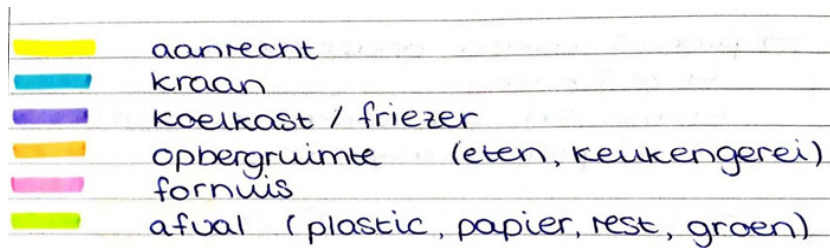 aanrecht
kraan
koelkast / friezer
opbergruimte (eten, keukengerei)
fornuis
afval (plastic, papier, rest, groen)